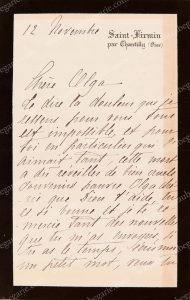 12 Novembre
Saint-Firmin
par Chantilly (Oise)
Chère Olga
Te dire la douleur que je
ressens pour vous tous
est impossible, et pour
toi en particulier qui
aimait tant, cette mort
a dû réveiller de bien
souvenirs pauvre Olga
que Dieu t'aide, tu
es si bonne et je te
mercie tant des nouvelles
que tu m'as
tu as le temps,
un petit mot,